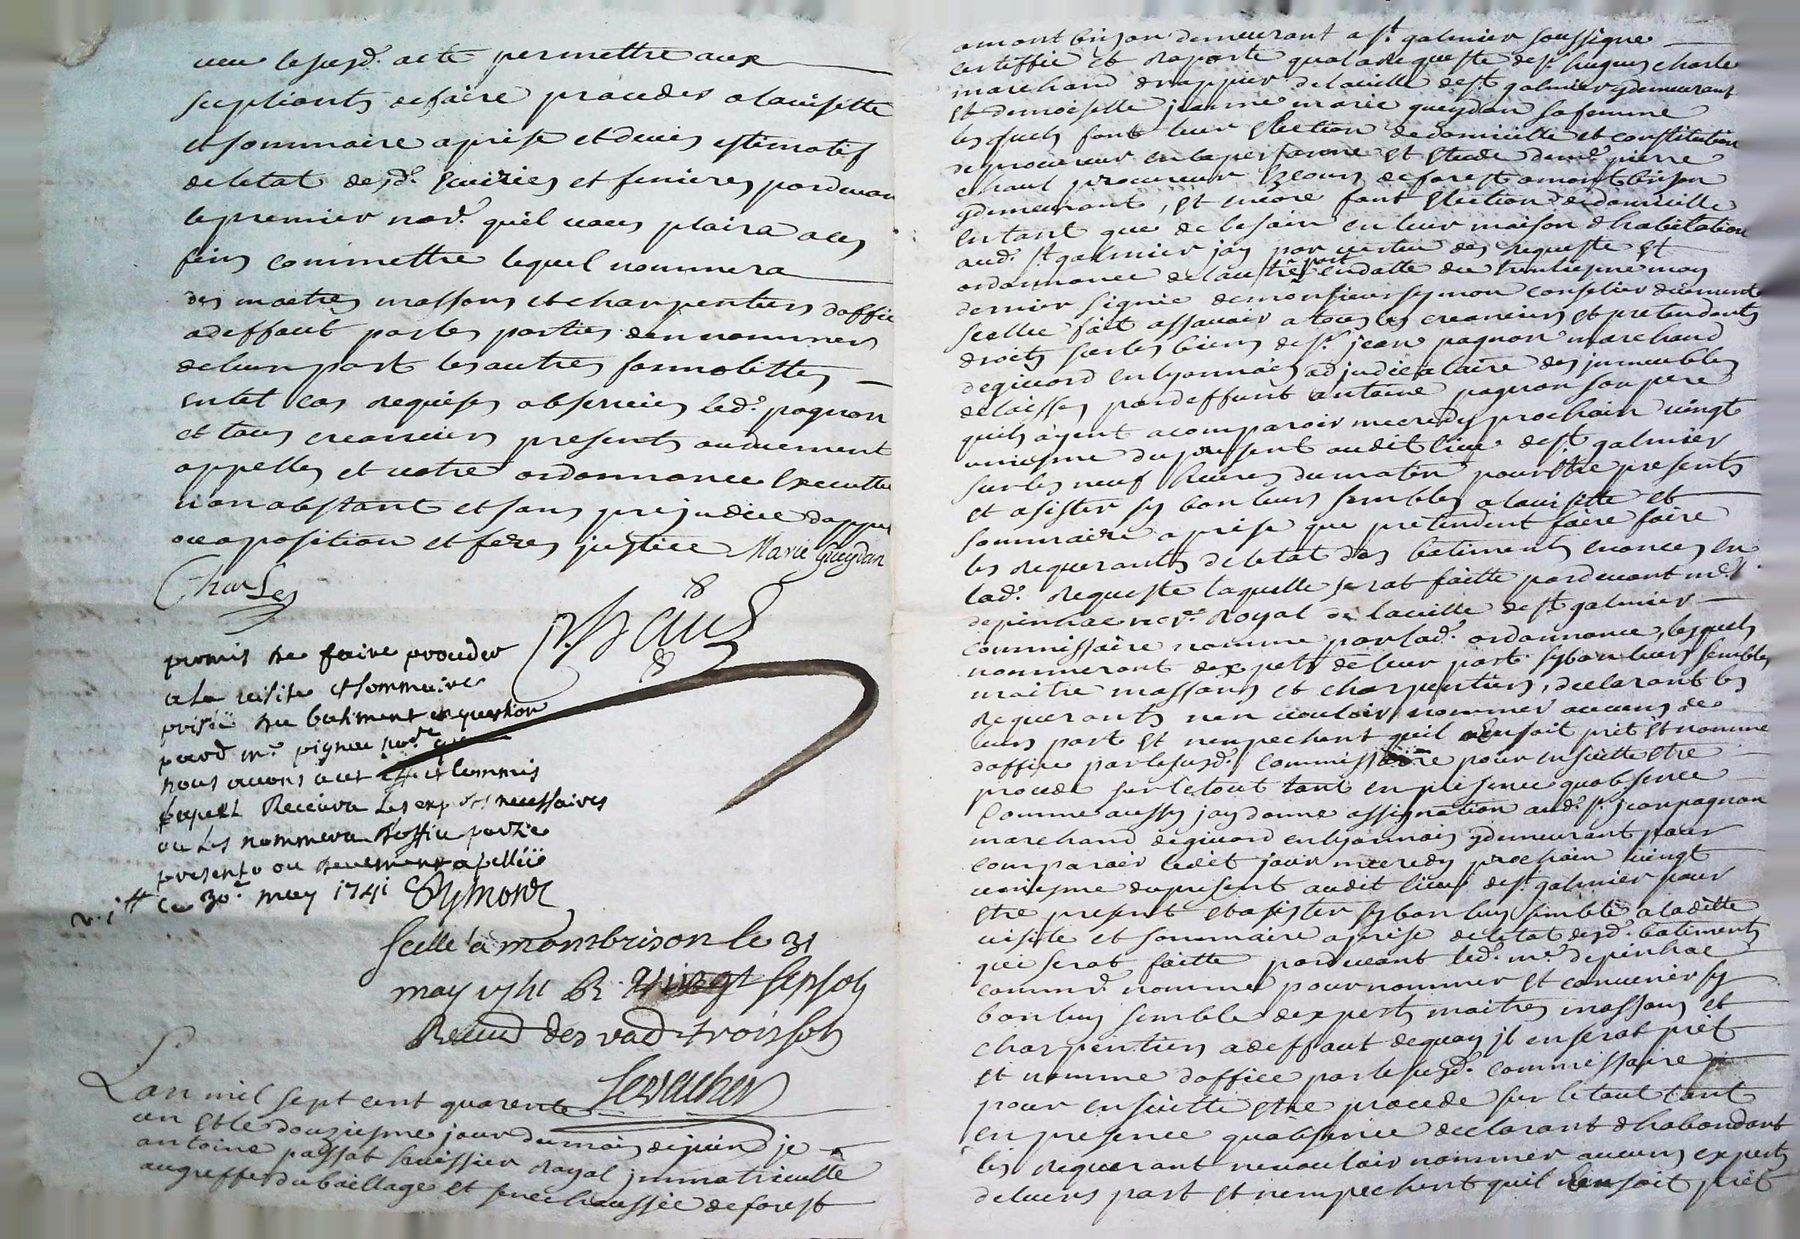 veu le susd. acte permettre aux
supliants de faire proceder a la visitte
et sommaire aprise et devis estimatif
de letat desd. Ecuiries et fenieres pardevan
le premier nore. quil vous plaira a ces
fins commettre lequel nommera
des maitres massons et charpentiers doffice
a deffaut par les parties den nommer
de leur part les autres formalittes
en tel cas requises observées led. pagnon
et tous creanciers presents ou duement
appelles et votre ordonnance Executtée
nonobstant et sans prejudice dappel
ou oposition et feres justice Marie Gueydan
Charles
permis de faire proceder
a la visite et sommaire
prisée du batiment en question
pard. me.
nous avons a cet effet commis
lequel Recevra Les experts necessaires
ou Les nommera doffice partie
presente ou deuement apellée
ce 30e may 1741 Symond
Scellé a montbrison le 31
may 1741 R. vingt sept sols
Receu des vad. trois sols
Lan mil sept cent quarente
un et le douziesme jour du mois de juin je
antoine passot huissier Royal jmmatriculle
au greffe du baillage et senechaussée de forest
a montbrison demeurant a st. galmier soussigne
certiffie et raporte qua la requeste de sr. hugues charles
marchand drappier de la ville de st. galmier y demeurant
et demoiselle jeanne marie gueydan sa femme
lesquels font leur Election de domicille et constitution
de procureur en la personne et Etude de me. pierre
chaul procureur Es cours de forest a montbrison
y demeurant, et encore font Election de domicille
en tant que de besoin en leur maison dhabitation
aud. st galmier jay par vertu des requeste et
ordonnance de lautre part en datte du trentiesme may
dernier signée de monsieur symon conselier duement
scellée fait assavoir a tous les creanciers et pretendants
droits sur les biens de sr. jean pagnon marchand
de givord en lyonnais adjudicataire des jmmeubles
delaisses par deffunt antoine pagnon son pere
quils ayent a comparoir mecredy prochain vingt
uniesme du present audit lieu de st. galmier
sur les neuf heures du matin pour Etre presents
et asister sy bon leurs semble a la visitte et
sommaire aprise que pretendent faire faire
les requerants de letat des batiments enoncés en
lad. requeste laquelle serat faitte pardevant me.
depinhac nore. Royal de la ville de st galmier
commissaire nomme par lad. ordonnance, lesquels
nommeront dexperts de leur part sy bon leurs semble,
maitre massons et charpentiers, declarant les
requerants nen vouloir nommer aucuns de
leurs part et nempechent quil en soit prit et nomme
doffice par le susd. commissaire pour ensuitte etre
procede sur le tout tant en presence quabsence
Comme aussy jay donne assignation aud. sr. jean pagnon
marchand de givord en lyonnais y demeurant pour
comparoir ledit jour mecredy prochain vingt
uniesme du present audit lieu de st. galmier pour
etre present et asister sy bon luy semble a la ditte
visite et sommaire aprise de letat desd. batiments
qui serat faitte pardevant led. me. depinhac
commre. nomme pour nommer et convenir sy
bon luy semble dexperts maitres massons et
charpentiers a deffaut de quoy jl en serat prit
et nomme doffice par le susd. commissaire
pour ensuitte etre procede sur le tout tant
en presence quabsence declarant dhabondant
les requerant ne vouloir nommer aucuns experts
de leurs part et nempechent quil en soit prit